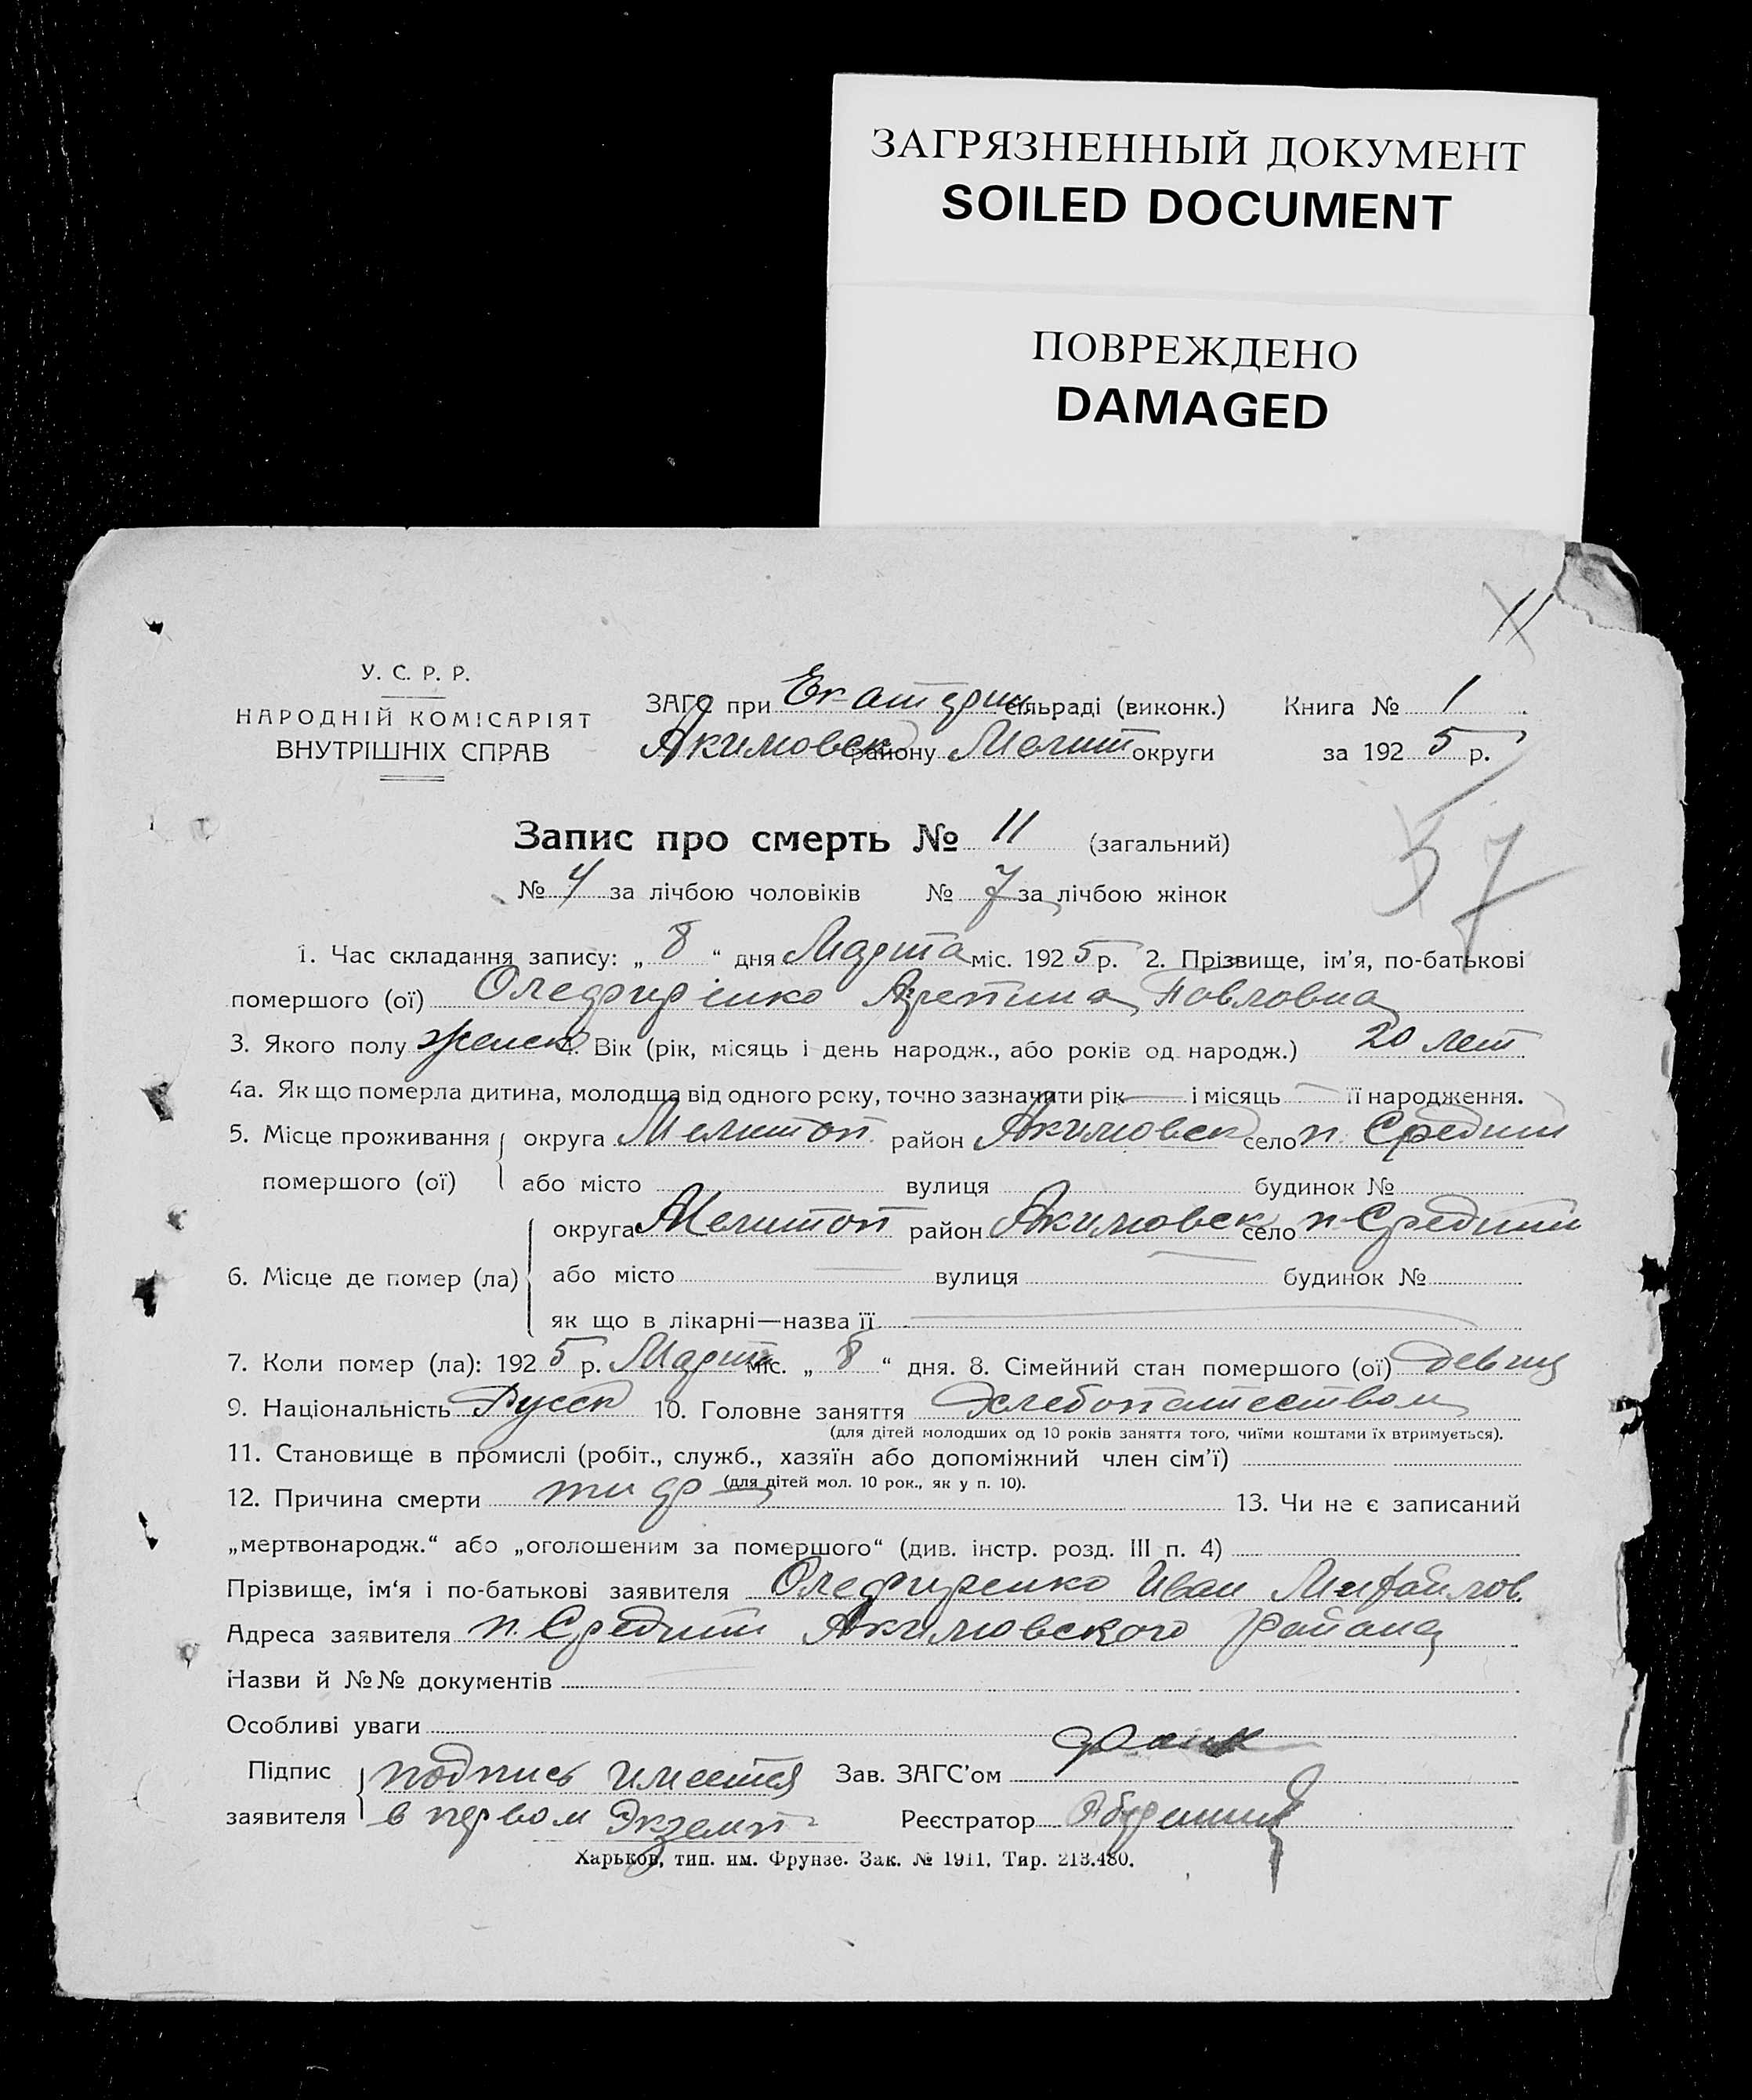 ЗАГРЯЗНЕННЫЙ ДОКУМЕНТ
SOILED DOCUMENT
ПОВРЕЖДЕНО
DAMAGED
11
У. С. Р. Р.
НАРОДНІЙ КОМІСАРІЯТ
ВНУТРІШНІХ СПРАВ
ЗАГС при Екатерин сільраді (виконк.) Книга № 1
Акимовск району Мелит округи за 192 5 р.
57
Запис про смерть № 11 (загальний)
№ 4 за лічбою чоловіків № 7 за лічбою жінок
1. Час складання запису: „ 8 “ дня Марта міс. 192 5 р. 2. Прізвище, ім’я, по-батькові
помершого (ої) Олефиренко Павловна
3. Якого полу женск 4. Вік (рік, місяць і день народж., або років од народж.) 20 лет
4а. Як що померла дитина, молодща від одного року, точно зазначити рік — і місяць — її народження.
5. Місце проживання округа Мелитоп. район Акимовск село п. Средний
помершого (ої) або місто вулиця будинок №
округа Мелитоп район Акимовск село п. Средний
6. Місце де помер (ла) або місто — вулиця — будинок №
як що в лікарні—назва її
7. Коли помер (ла): 192 5 р. Март міс. „ 8 “ дня. 8. Сімейний стан помершого (ої) девиц
9. Національність Русск 10. Головне заняття Хлебопашеством
(для дітей молодших од 10 років заняття того, чиїми коштами їх втримується).
11. Становище в промислі (робіт., служб., хазяїн або допоміжний член сім’ї)
(для дітей мол. 10 рок., як у п. 10).
12. Причина смерти тиф 13. Чи не є записаний
„мертвонародж.“ або „оголошеним за помершого“ (див. інстр. розд. III п. 4)
Прізвище, ім‘я і по-батькові заявителя Олефиренко Иван Михайлов.
Адреса заявителя п. Средний Акимовского района
Назви й №№ документів
Особливі уваги
Підпис подпись имеется Зав. ЗАГС’ом
заявителя в первом Экземп Реєстратор
Харьков, тип. им. Фрунзе. Зак. № 1911. Тир. 213.480.